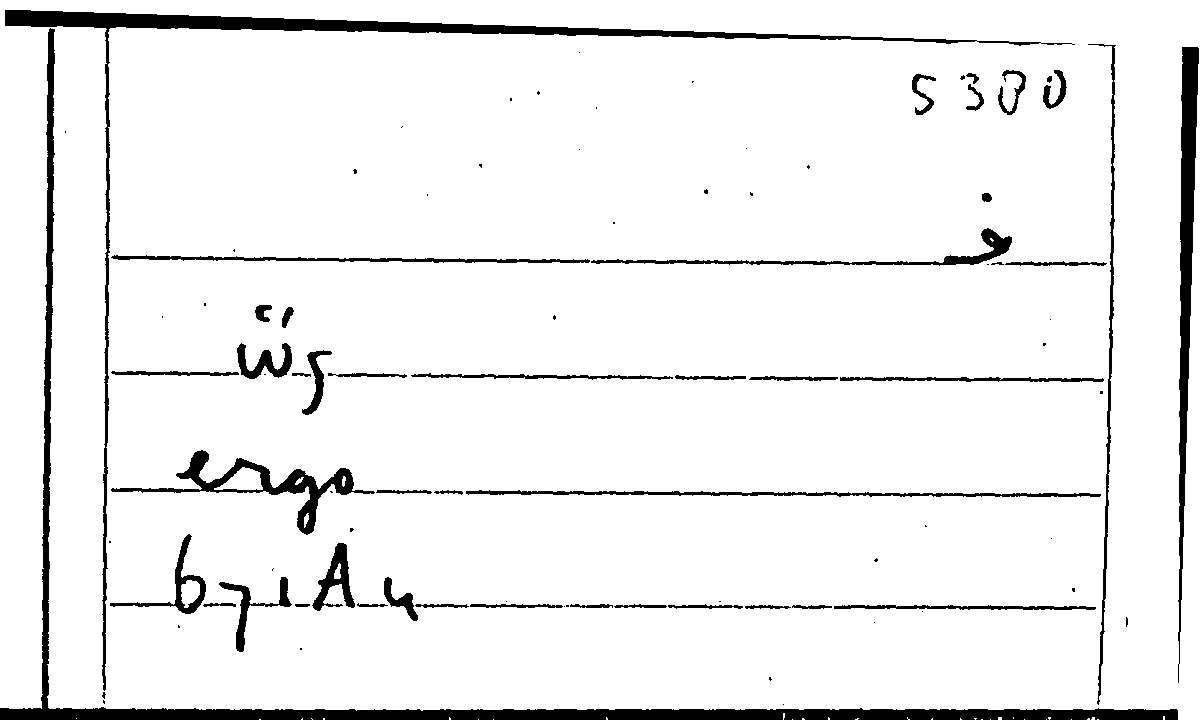 5380
ف
ὥς
ergo
671A4